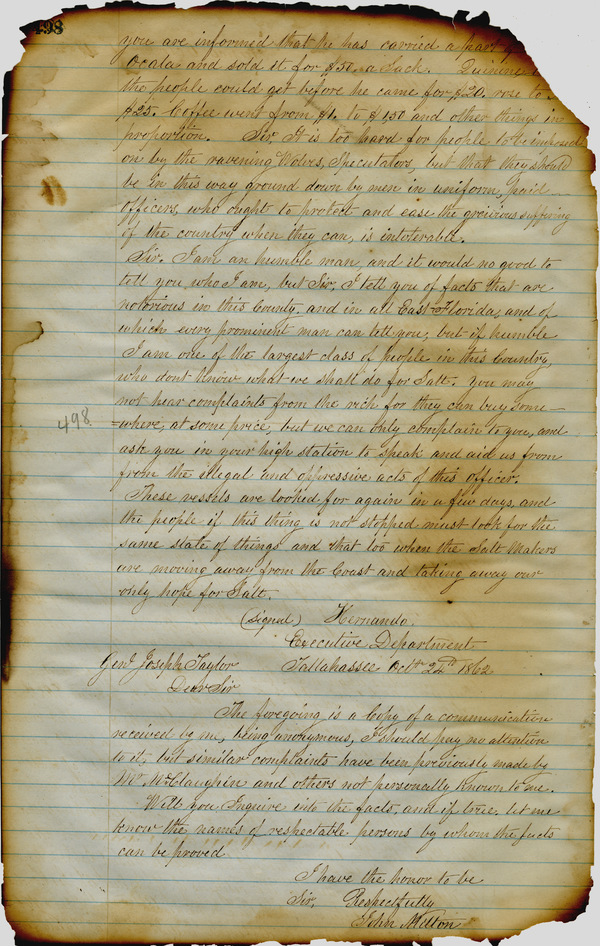 498
you are informed that he has carried a part
Ocala and sold it for $50. a Sack. Quinine
the people could get before he came for $20. rose to
$25. Coffee went from $1. to $1.50 and other things in
proportion. Sir, It is too hard for people to be imposed
on by the ravening Wolves, Speculators, but that they should
be in this way ground down by men in uniform, paid
officers, who ought to protect and ease the greivious suffering
of the country when they can, is intolerable.
Sir. I am an humble man, and it would no good to
tell you who I am, but Sir, I tell you of facts that are
notorious in this County. and in all East Florida, and of
which every prominent man can tell you; but if humble
I am one of the largest class of people in this Country,
who dont know what we shall do for Salt. You may
not hear complaints from the rich for they can buy some-
=where, at some price, but we can only complain to you, and
498
ask you in your high station to speak and aid us from
from the illegal and oppressive acts of this officer.
These vessels are looked for again in a few days, and
the people if this thing is not stopped must look for the
same state of things and that too when the Salt Makers
are moving away from the Coast and taking away our
only hope for Salt.
(Signed) Hernando.
Executive Department
Genl. Joseph Taylor Tallahassee Octr. 24th 1862
Dear Sir
The foregoing is a Copy of a communication
received by me, being anonymous, I should pay no attention
to it; but similar complaints have been previously made by
Mr. McClaughin and others not personally known to me.
Will you Inquire into the facts, and if true. let me
know the names of respectable persons by whom the facts
can be proved
I have the honor to be
Sir, Respectfully
John Milton